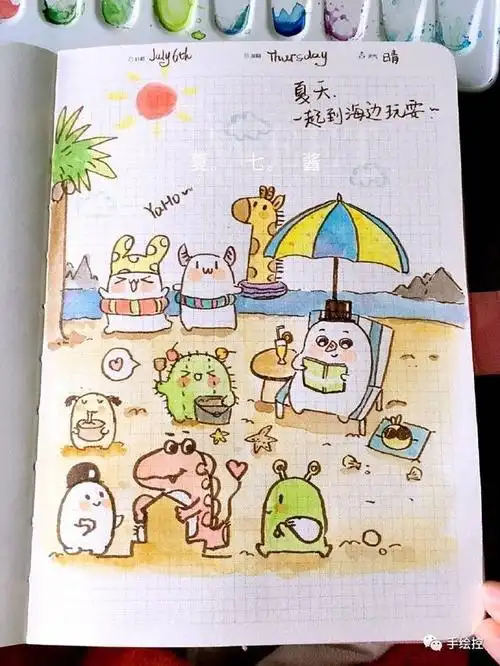 July 6th Thursday 晴
夏天.
一起到海边玩耍~
夏。七。酱
YaHo~
手绘控